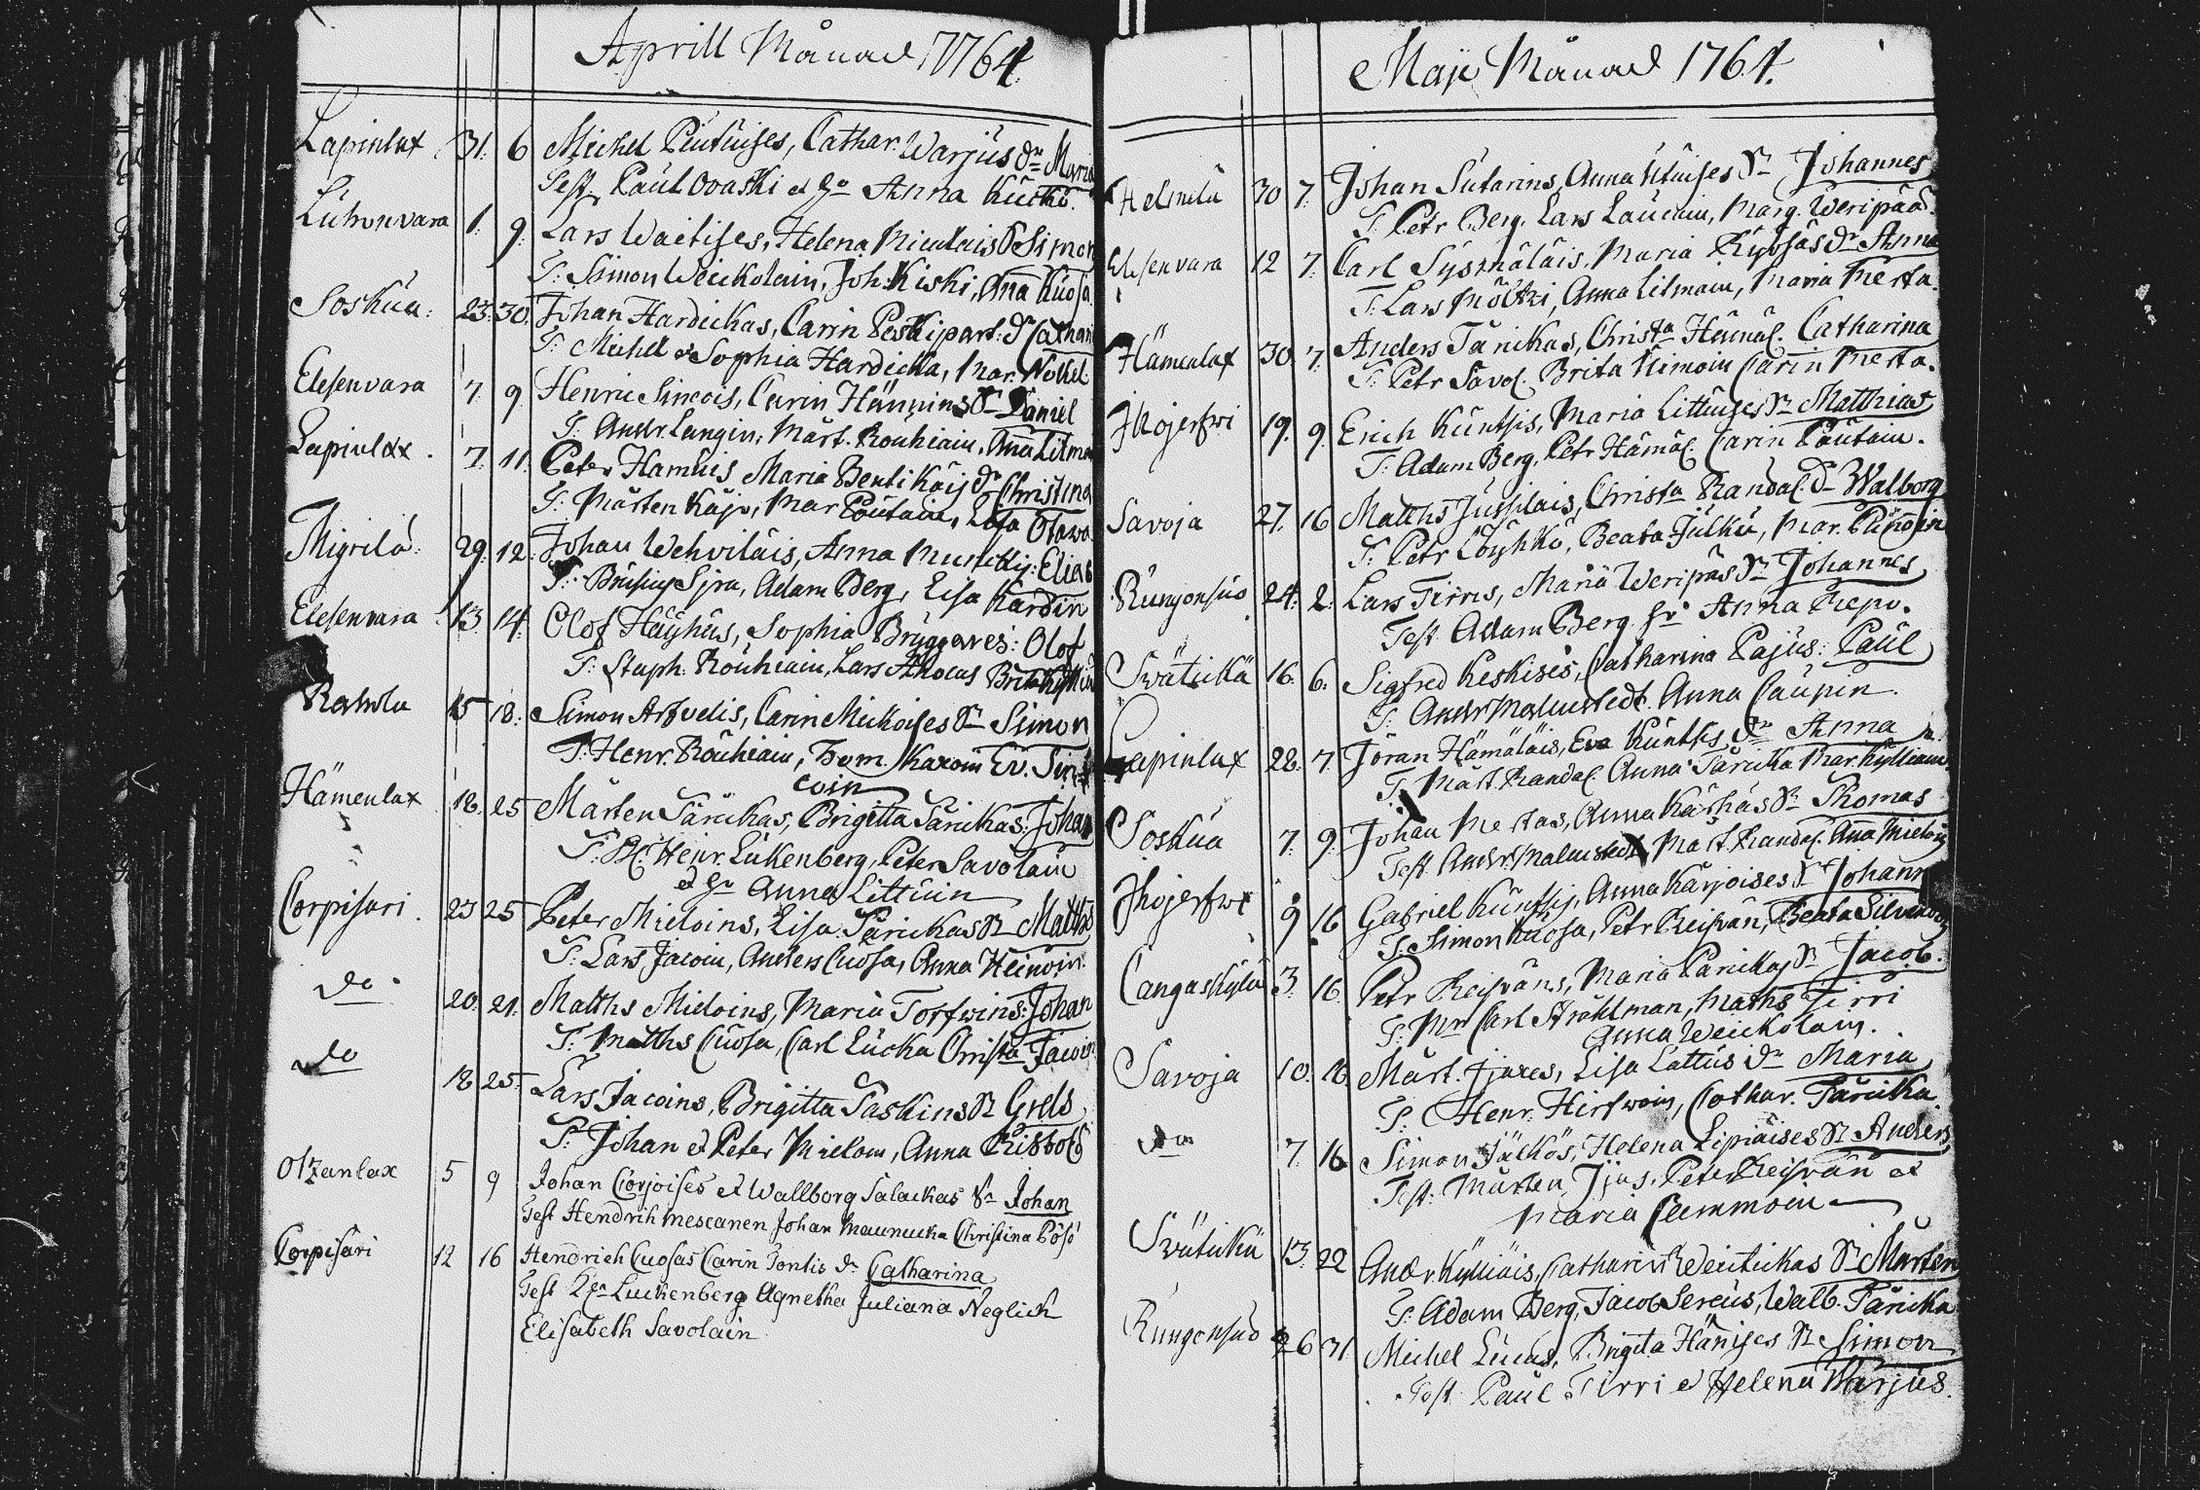 Aprill Månad 1764.
Lapinlax 31. 6 Michel Pentuises, Cathar. Warjus dr Maria
Test. Paul Ovaski et Hu Anna Kucko.
Lühonvara 1. 9. Lars Waitises, Helena Miculais S Simon
T: Simon Weickolain, Joh. Kiski, Ana Kuosa.
Soskua: 23. 30. Johan Hardickas, Carin Peskipart: dr Cathari
T: Michel et Sophia Hardicka, Mar. Nokel
Elesenvara 7. 9. Henric Sincois, Carin Hännins Sn Daniel
T: Andr. Langin, Mårt. Rouhiain, Ana Litma
Lapinlax. 7. 11. Peter Hamuis Maria Bentikäij dr Christina
T: Mårten Käjo, Mar Poutain, Lisa Otawa
Migrilä: 29. 12. Johan Wehviläis, Anna Mustikij: Elias
T: Brusius Sjra, Adam Berg, Lisa Kardin
Elesenvara 13. 14. Olof Häyhus, Sophia Bryggares: Olof
T: Staph. Rouhiain, Lars Ahocas Brita
Rahola 15 18. Simon Arfvelis, Carin Mickoises Sn Simon
T: Henr. Rouhiain, Tom. Karoin Ev. Sin
coin
Hämenlax 18. 25 Mårten Tärickas, Brigitta Tärickas: Johan
T: Henr. Lükenberg, Peter Savolain
et Hu Anna Littuin
Corpisari. 23 25 Peter Mieloins, Lisa Parickas Sn Matths
T: Lars Jacoin, Anders Cuosa, Anna Heinoin.
do. 20. 21. Matths Mieloins, Maria Torfwins: Johan
T: Matths Cuosa, Carl Lucka Christa Jacoin
do 18 25. Lars Jacoins, Brigitta Saskins Sn Grels
T: Johan et Peter Mieloin, Anna
Otzanlax 5 9 Johan Corjoises et Wallborg Salackas Sn Johan
Test Hendrih Mescanen Johan Maunucka Christina Pösö
Corpisari 12 16 Hendrich Cuosas Carin Tontis dr Catharina
Test Luckenberg Agnetha Juliana Neglick
Elisabeth Savolain
Maji Månad 1764.
Helmilä 30 7. Johan Sutarins, Anna Utuises Sn Johannes
T: Petr Berg, Lars Laucain, Marg. Weripää.
Elesenvara 12 7. Carl Sysmäläis, Maria Ryösäs dr Anna
T: Lars Möltzi, Anna Litmain, Maria Merta.
Hämenlax 30. 7. Anders Tärickas, Christa Hämäl. Catharina
T: Petr Savol. Brita Nimoin Carin Merta.
Ihojerfwi 19. 9. Erich Kuntsis, Maria Littuises Sn Matthias
T: Adam Berg, Petr Hämäl. Carin Pautain.
Savoja 27. 16 Matths Jussilais, Christa Randal. dr Walborg
T: Petr Löyhkö, Beata Julku, Mar. Punoin
Rungonsuo 24. 2. Lars Tirres, Maria Weripäs Sn Johannes
Test Adam Berg Sr Anna Repo.
Swätickä 16. 6. Sigfred Keskises, Catharina Pajus: Paul
T: Andr Malmstedt. Anna Caupin.
Lapinlax 28. 7. Jöran Hämäläis, Eva Kuntsis dr Anna
T: Mårt. Randal. Anna Täricka Mar. Kylliain.
Soskua 7. 9. Johan Mertas, Anna Kärhäs Sn Thomas
Test. Andr. Malmstedt Mart. Randal. Ana Mieloin
Ihojerfwi 9 16 Gabriel Kuntsij, Anna Karjoises Sn Johann
T: Simon Kuosa, Petr Reisvän, Beata
Cangaskylä 3. 16. Petr Reisväns, Maria Parickas Sn Jacob.
T: Mr Carl Stråhlman, Maths Tirri
Anna Weickolain.
Savoja 10. 16. Mårt. Ijäxes, Lisa Lattus dr Maria
T: Henr. Hirfwoin, Cathar. Täricka.
do 7. 16 Simon Jälkös, Helena Lipiäises Sn Anders
Test: Mårten Ijäs, Peter Reisvän et
Maria Cammoin
Swätickä 13. 22 Andr Kylliäis, Catharin Weitickas Sn Mårten
T: Adam Berg, Jacob Sereus, Walb. Täricka
Rungonsuo 26 31. Michel Lucas, Brigita Hänises Sn Simon
Test. Paul Tirri et Helena Warjus.